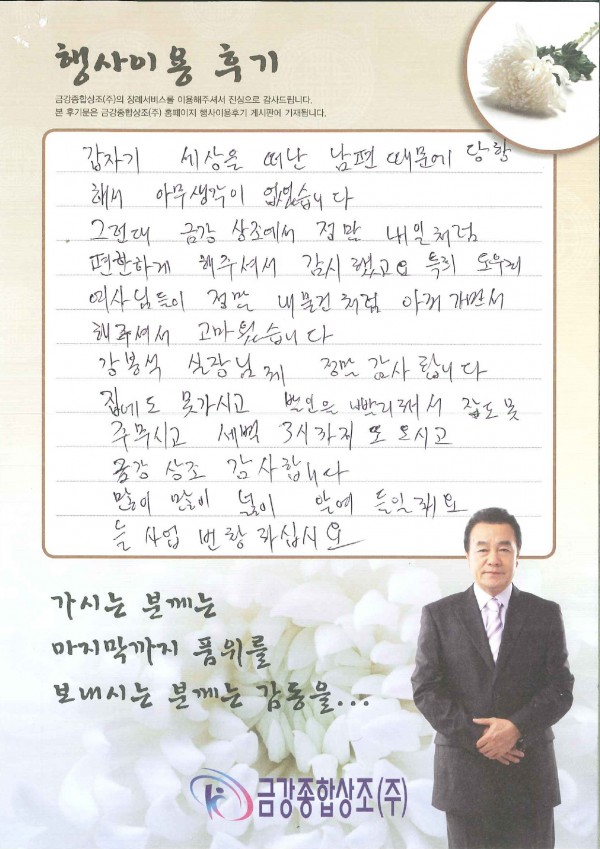 행사이용 후기
금강종합상조(주)의 장례서비스를 이용해주셔서 진심으로 감사드립니다.
본 후기문은 금강종합상조(주) 홈페이지 행사이용후기 게시판에 기재됩니다.
갑자기 세상을 떠난 남편 때문에 당황
해서 아무생각이 없었습니다
그런대 금강 상조에서 정말 내일처럼
편한하게 해주셔서 감사했고요 특히 도우미
여사님들이 정말 내물건처럼 아껴가면서
해주셔서 고마웠습니다
강봉석 실장님께 정말 감사합니다
집에도 못가시고 발인은 빨리해서 잠도 못
주무시고 새벽 3시까지 또 오시고
금강 상조 감사합니다
많이 많이 널이 알여 들일게요
늘 사업 번창 하십시요
가시는 분께는
마지막까지 품위를
보내시는 분께는 감동을...
금강종합상조(주)